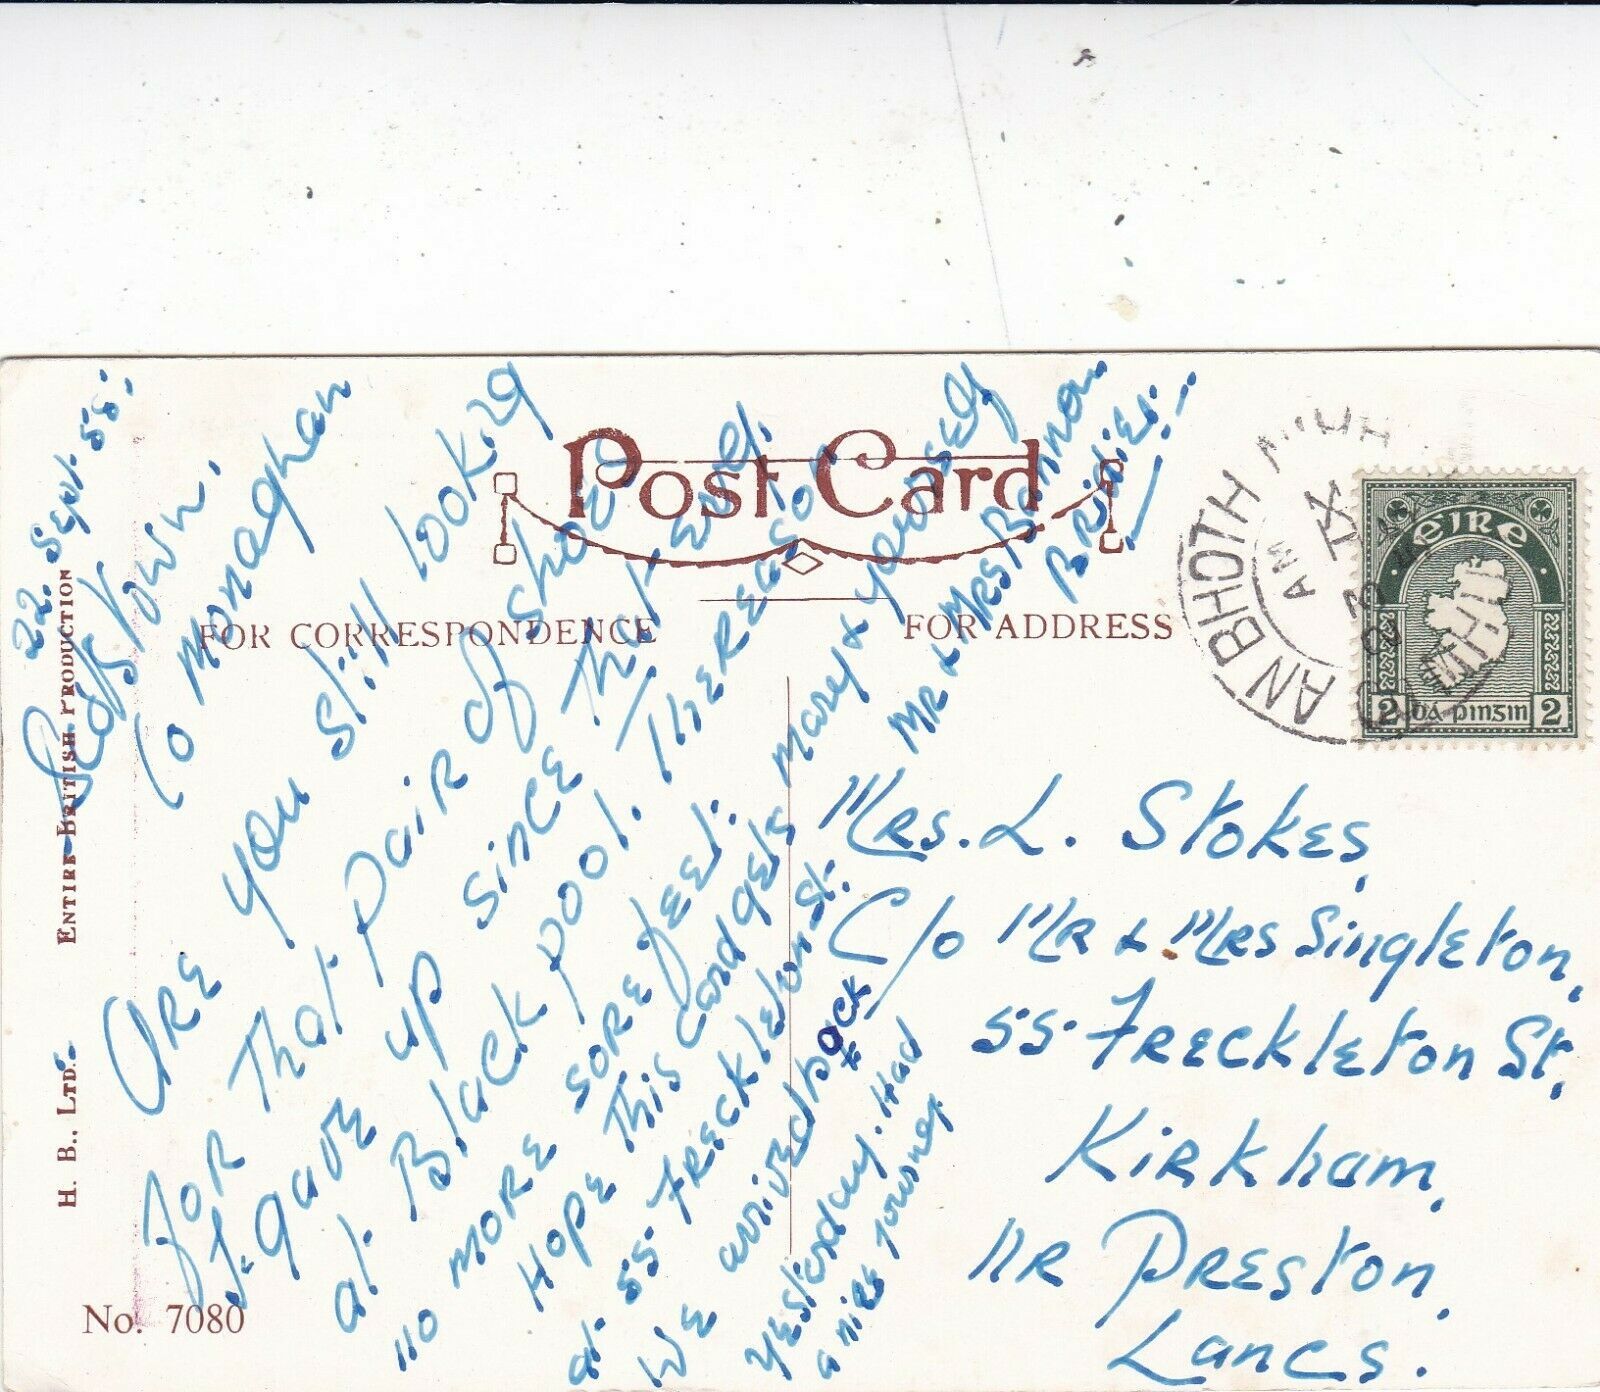 Post Card
FOR CORRESPONDENCE
FOR ADDRESS
H. B., LTD. ENTIRE BRITISH PRODUCTION
No. 7080
22. Sept. 55.
Co Monaghan
ARE you still look.g
FOR That pair of shoes
I. gave up since that Evng.
at. Black pool. THEREASON
no more sore feet.
Hope this card gets mary & yourself
at. 55. FRECKLETON St.
WE arrived back
yesterday. Had
a nice Journey.
MR & MRS Bannon
BRidiE.
Mrs. L. Stokes,
C/o MR & MRS Singleton,
55. FRECKLETON St.
Kirkham,
NR PRESTON,
Lancs.
AN BHOTH
AM
IX
EIRE
2 DÁ PINGIN 2